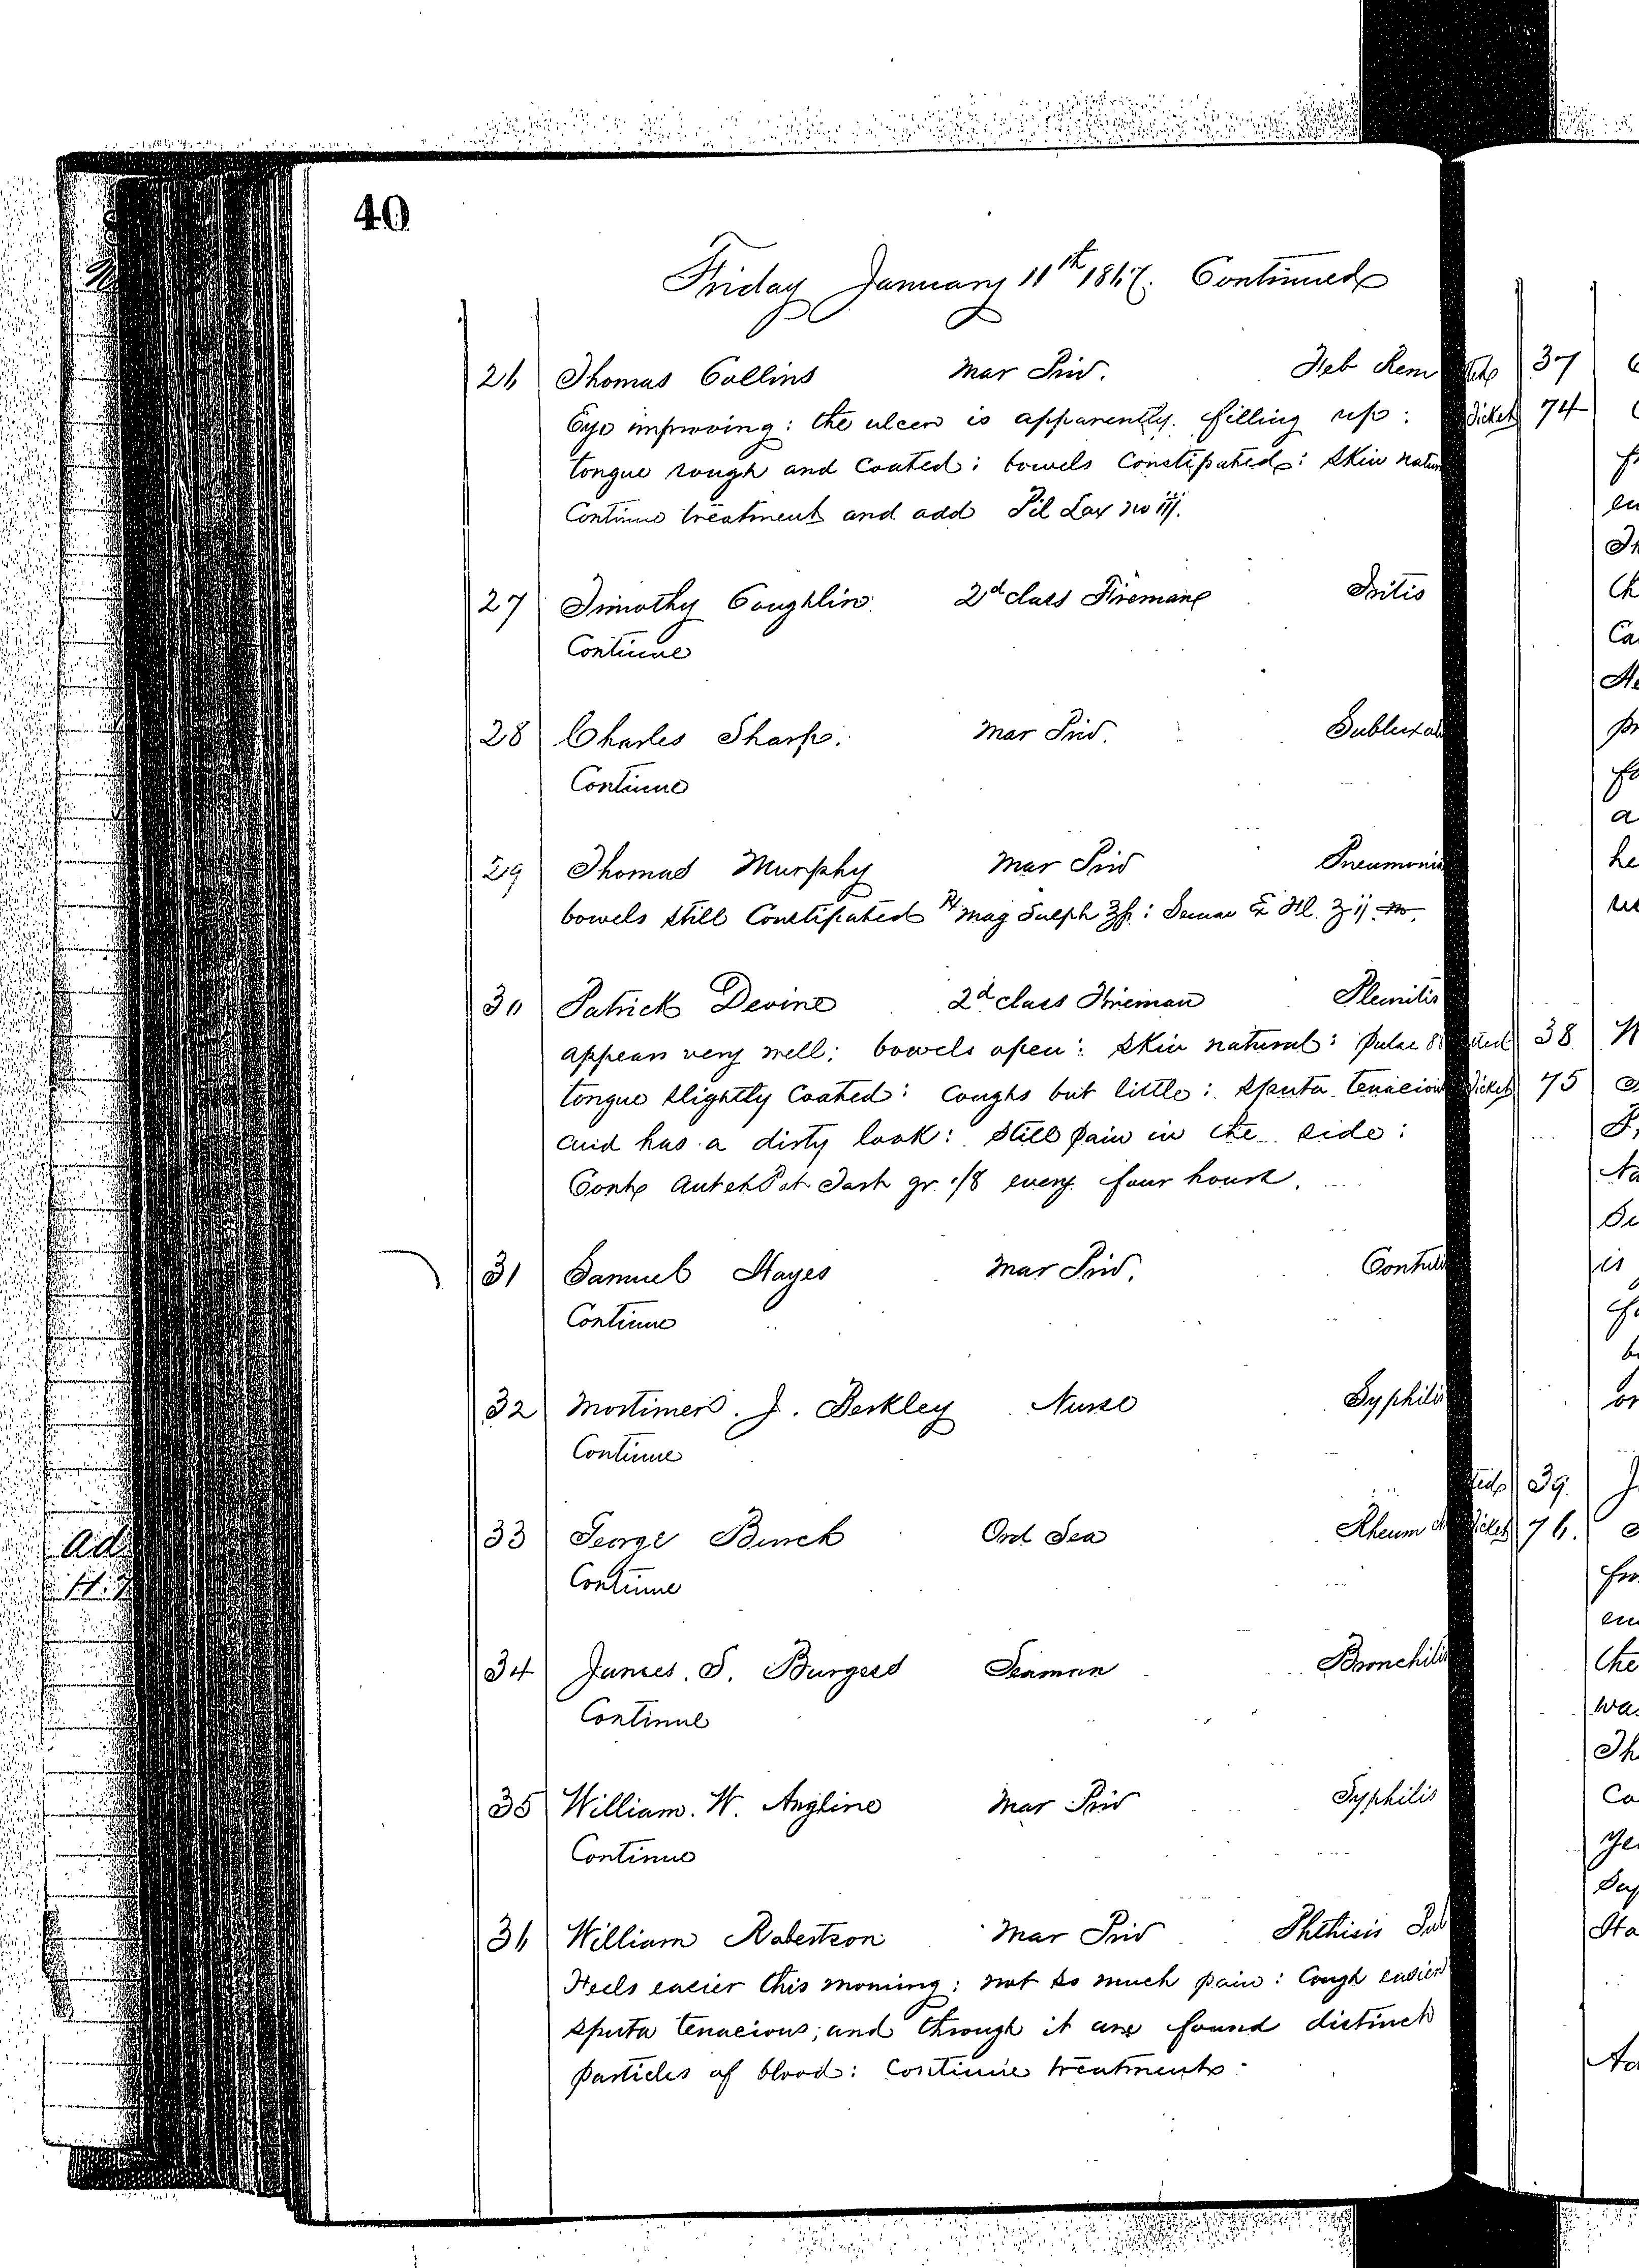 40
Friday January 11th 1867. Continued
26 Thomas Collins Mar Priv. Feb Rem
Eye improving: the ulcer is apparently filling up:
tongue rough and coated: bowels Constipated: skin natur
Continue treatment and add Pil Lax no iij.
27 Timothy Coughlin 2d class Fireman Iritis
Continue
28 Charles Sharp. Mar Priv. Subluxa
Continue
29 Thomas Murphy Mar Priv Pneumonia
bowels still Constipated ℞ Mag Sulph : Sennae Ex Fl. ʒij
30 Patrick Devine 2d class Fireman Pleuritis
appears very well: bowels open: skin natural: pulse 8
tongue slightly coated: coughs but little: sputa tenacious
and has a dirty look: still pain in the side:
Cont Ant et Pot Tart gr. 1/8 every four hours.
31 Samuel Hayes Mar Priv. Contusi
Continue
32 Mortimer. J. Berkley Nurse Syphilis
Continue
33 George Burck Ord Sea Rheum
Continue
34 James. S. Burgess Seaman Bronchitis
Continue
35 William. W. Angline Mar Priv Syphilis
Continue
36 William Robertson Mar Priv Phthisis Pul
Feels easier this morning: not so much pain: Cough easier
sputa tenacious; and through it are found distinct
particles of blood: Continue treatment.
37
Ticket 74
38
Ticket 75
39.
Ticket 76.